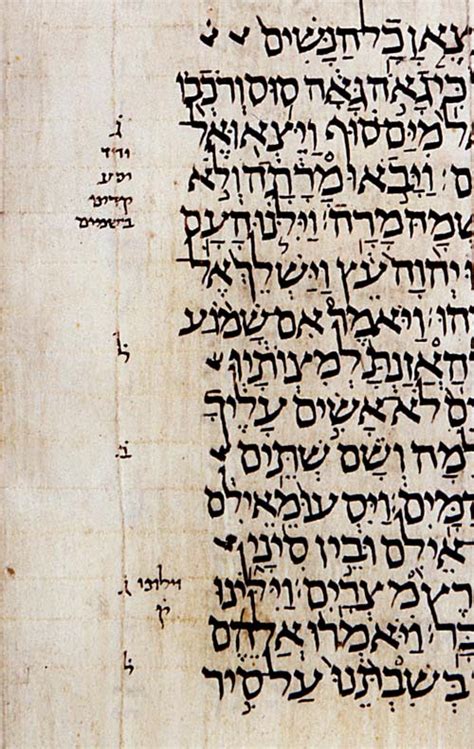 צֶאןָ כָל הַנָּשִׁים
כִּי גָאֹה גָּאָה סוּס וְרֹכְבוֹ
אֶל מִיַּם סוּף וַיֵּצְאוּ אֶל
ם׃ וַיָּבֹאוּ מָרָתָה וְלֹא
שְׁמָהּ מָרָה׃ וַיִּלֹּנוּ הָעָם
ו יְהוָה עֵץ וַיַּשְׁלֵךְ אֶל
הוּ׃ וַיֹּאמֶר אִם שָׁמוֹעַ
הַאֲזַנְתָּ לְמִצְוֺתָיו
ם לֹא אָשִׂים עָלֶיךָ
לִמָה וְשָׁם שְׁתֵּים
הַמָּיִם׃ וַיִּסְעוּ מֵאֵילִם
אֵילִם וּבֵין סִינָי
רֶץ מִצְרָיִם׃ וַיִּלִּינוּ
בָּר׃ וַיֹּאמְרוּ אֲלֵהֶם
בְּשִׁבְתֵּנוּ עַל סִיר
ג
בשמים
ל
ב
וילונו ג
ק
ל